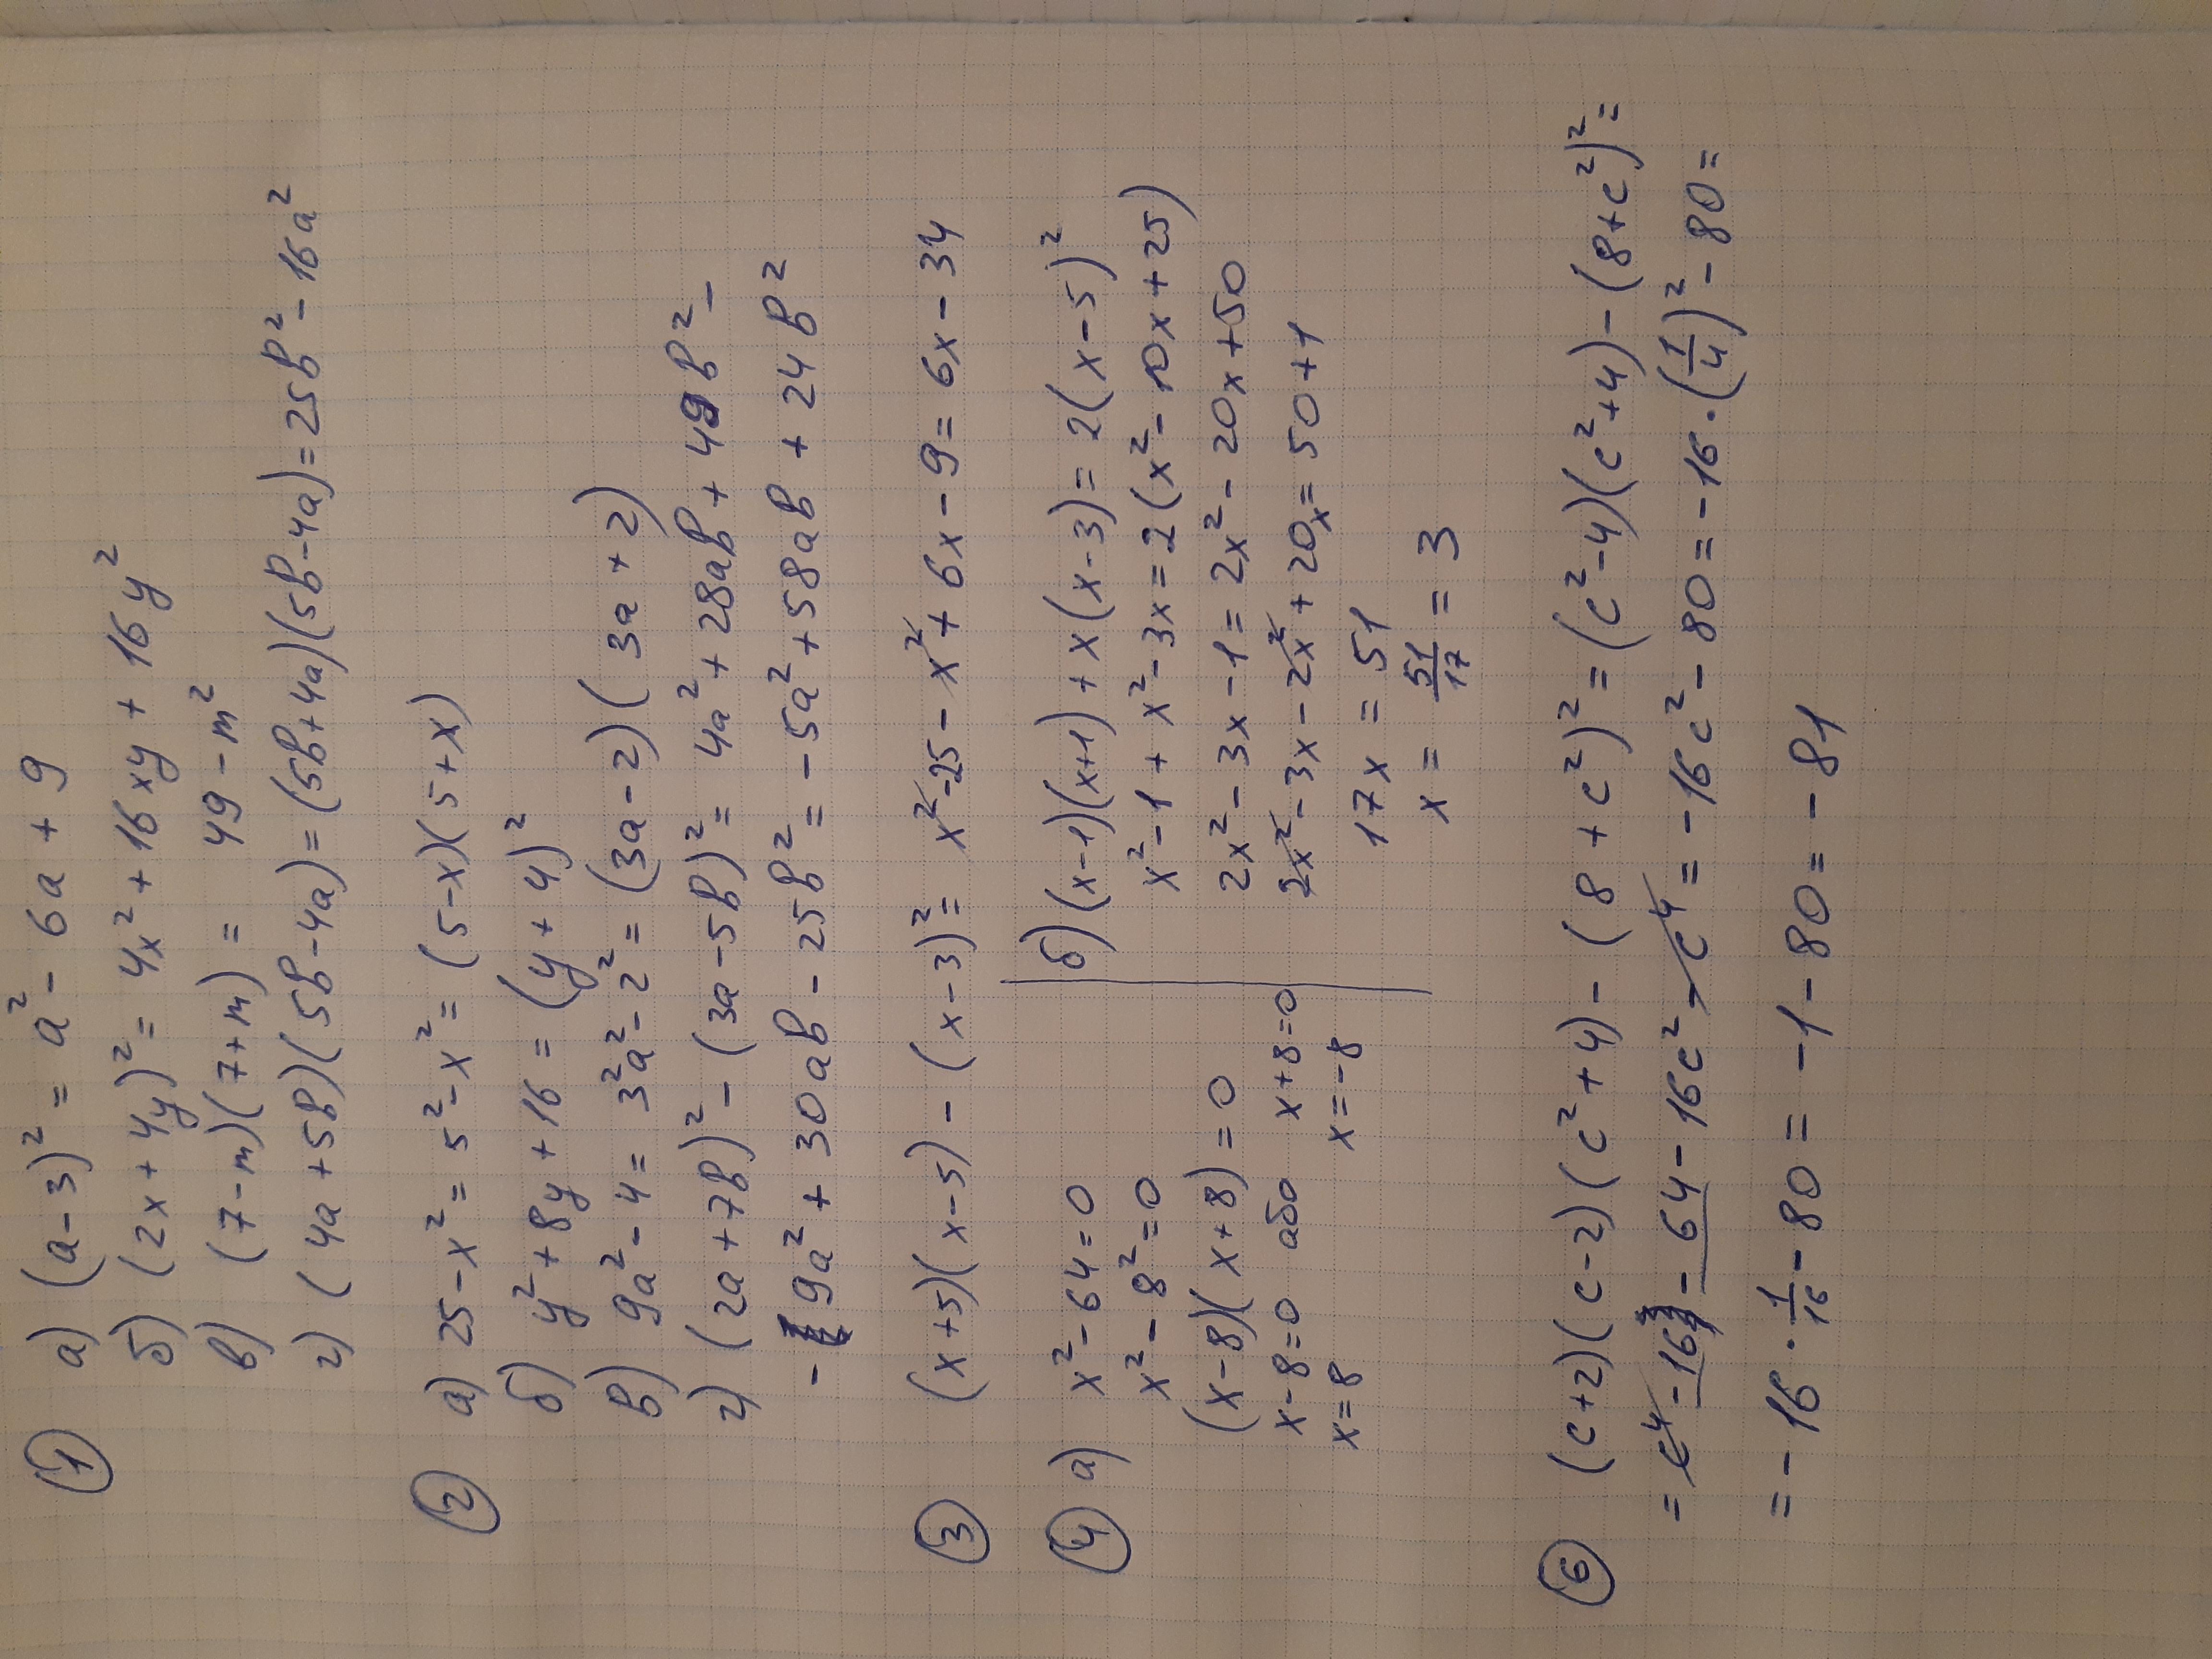 ① а) (a-3)² = a² - 6a + 9
б) (2x + 4y)² = 4x² + 16xy + 16y²
в) (7-m)(7+m) = 49 - m²
г) (4a+5b)(5b-4a) = (5b+4a)(5b-4a) = 25b² - 16a²
② а) 25 - x² = 5² - x² = (5-x)(5+x)
б) y² + 8y + 16 = (y + 4)²
в) 9a² - 4 = 3²a² - 2² = (3a - 2)(3a + 2)
г) (2a + 7b)² - (3a - 5b)² = 4a² + 28ab + 49b² -
- 9a² + 30ab - 25b² = -5a² + 58ab + 24b²
③ (x+5)(x-5) - (x-3)² = x² - 25 - x² + 6x - 9 = 6x - 34
④ а) x² - 64 = 0
x² - 8² = 0
(x-8)(x+8) = 0
x-8=0 або x+8=0
x=8 x=-8
б) (x-1)(x+1) + x(x-3) = 2(x-5)²
x² - 1 + x² - 3x = 2(x² - 10x + 25)
2x² - 3x - 1 = 2x² - 20x + 50
2x² - 3x - 2x² + 20x = 50 + 1
17x = 51
x = 51/17 = 3
⑥ (c+2)(c-2)(c²+4) - (8+c²)² = (c²-4)(c²+4) - (8+c²)² =
= c⁴ - 16 - 64 - 16c² - c⁴ = -16c² - 80 = -16·(1/4)² - 80 =
= -16 · 1/16 - 80 = -1 - 80 = -81